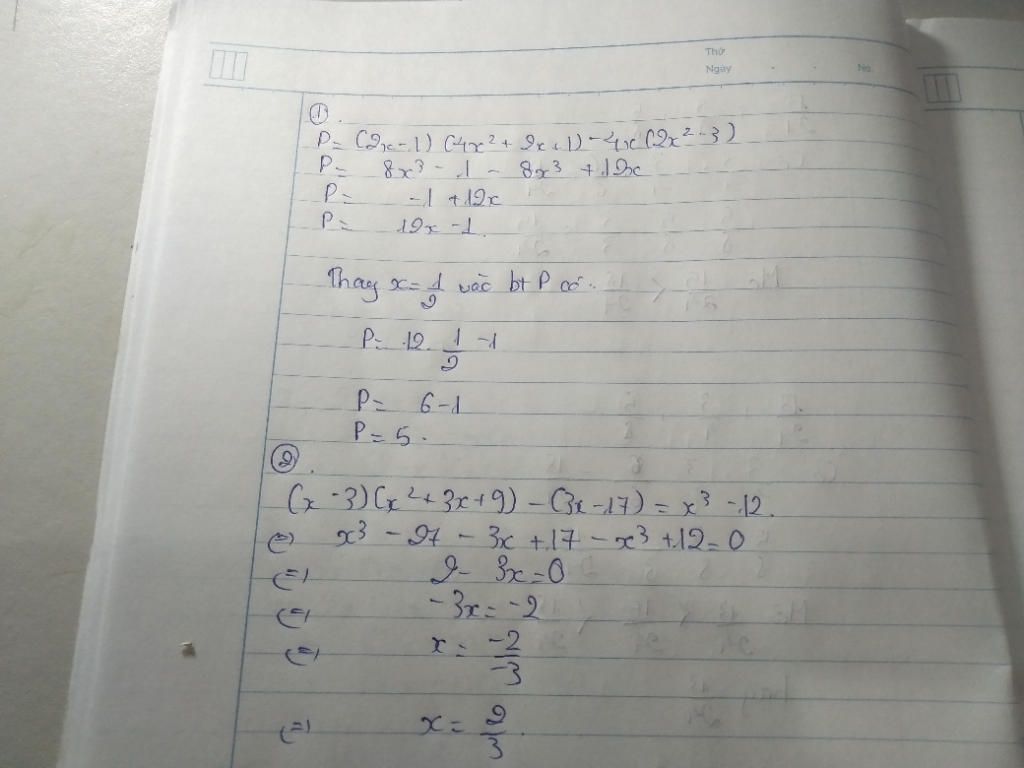 Thứ
Ngày No.
①.
P = (2x - 1) (4x² + 2x + 1) - 4x (2x² - 3)
P = 8x³ - 1 - 8x³ + 12x
P = -1 + 12x
P = 12x - 1.
Thay x = 1/2 vào bt P có:
P = 12. 1/2 - 1
P = 6 - 1
P = 5.
②.
(x - 3)(x² + 3x + 9) - (3x - 17) = x³ - 12.
⇔ x³ - 27 - 3x + 17 - x³ + 12 = 0
⇔ 2 - 3x = 0
⇔ -3x = -2
⇔ x = -2/-3
⇔ x = 2/3.